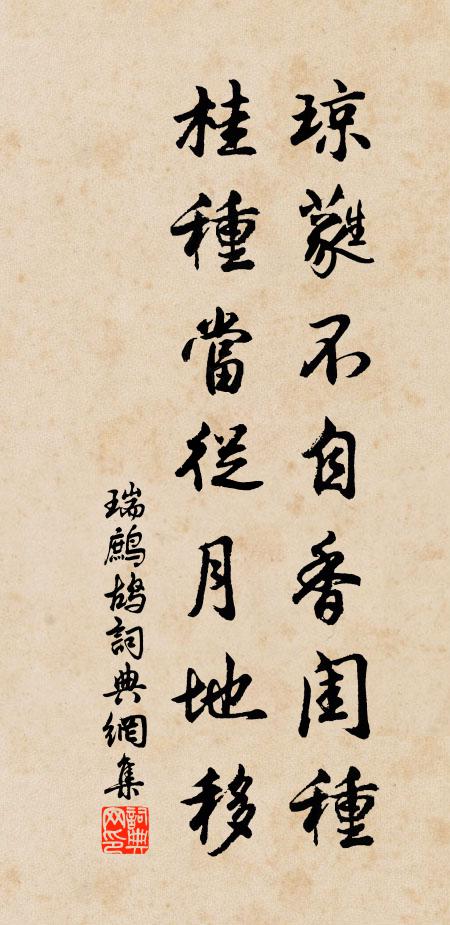 琼蕤不自香闺種
桂種當從月地移
瑞鷓鴣詞典網集
詞典網印